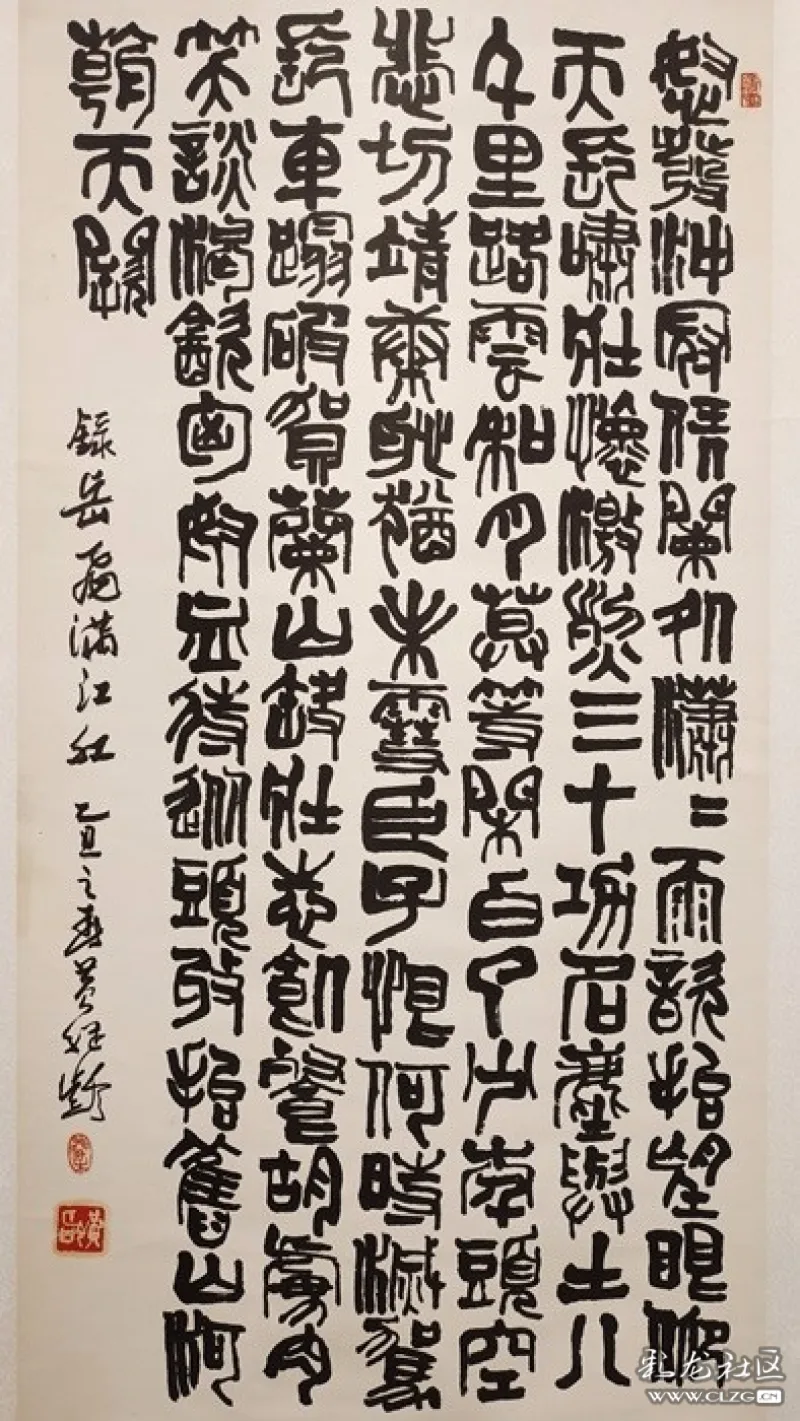 怒發沖冠倚闌処瀟〻雨歇抬望眼仰
天長嘯壯懷激烈三十功名塵與土八
千里路雲和月莫等閑白了少年頭空
悲切靖康恥猶未雪臣子恨何時滅駕
長車蹋破賀蘭山缺壯志飢餐胡虜肉
笑談渴飲匈奴血待從頭收拾舊山河
朝天闕
錄岳飛滿江紅 乙丑之春黃
彩龙社区
WWW.CLZG.CN